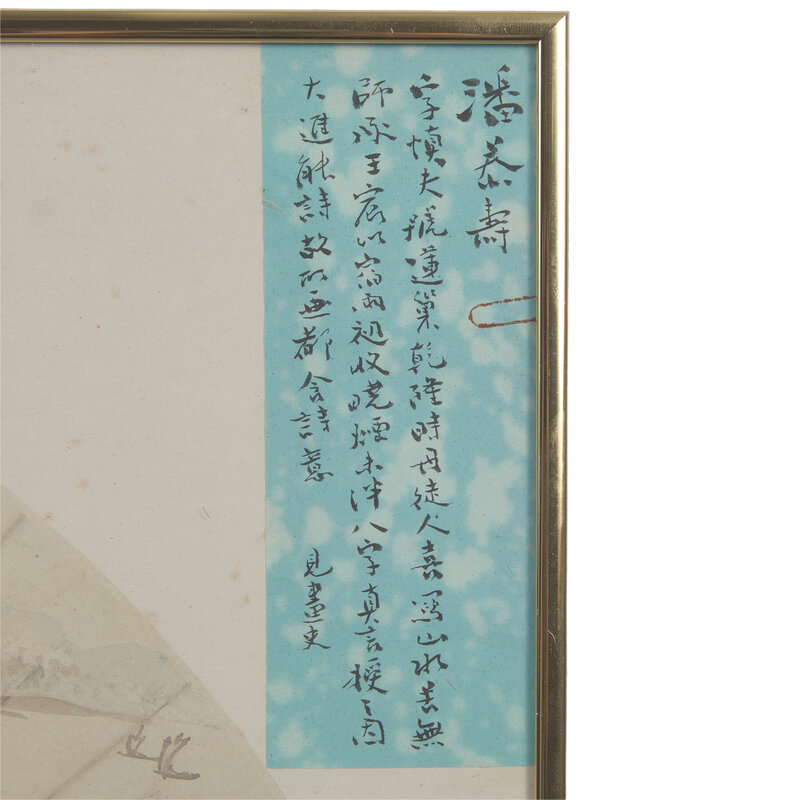 潘恭壽
字慎夫號蓮巢乾隆時丹徒人喜寫山水苦無
師承王宸以宿雨初收曉煙未泮八字真言授之因
大進能詩故所畫都含詩意
見畫史